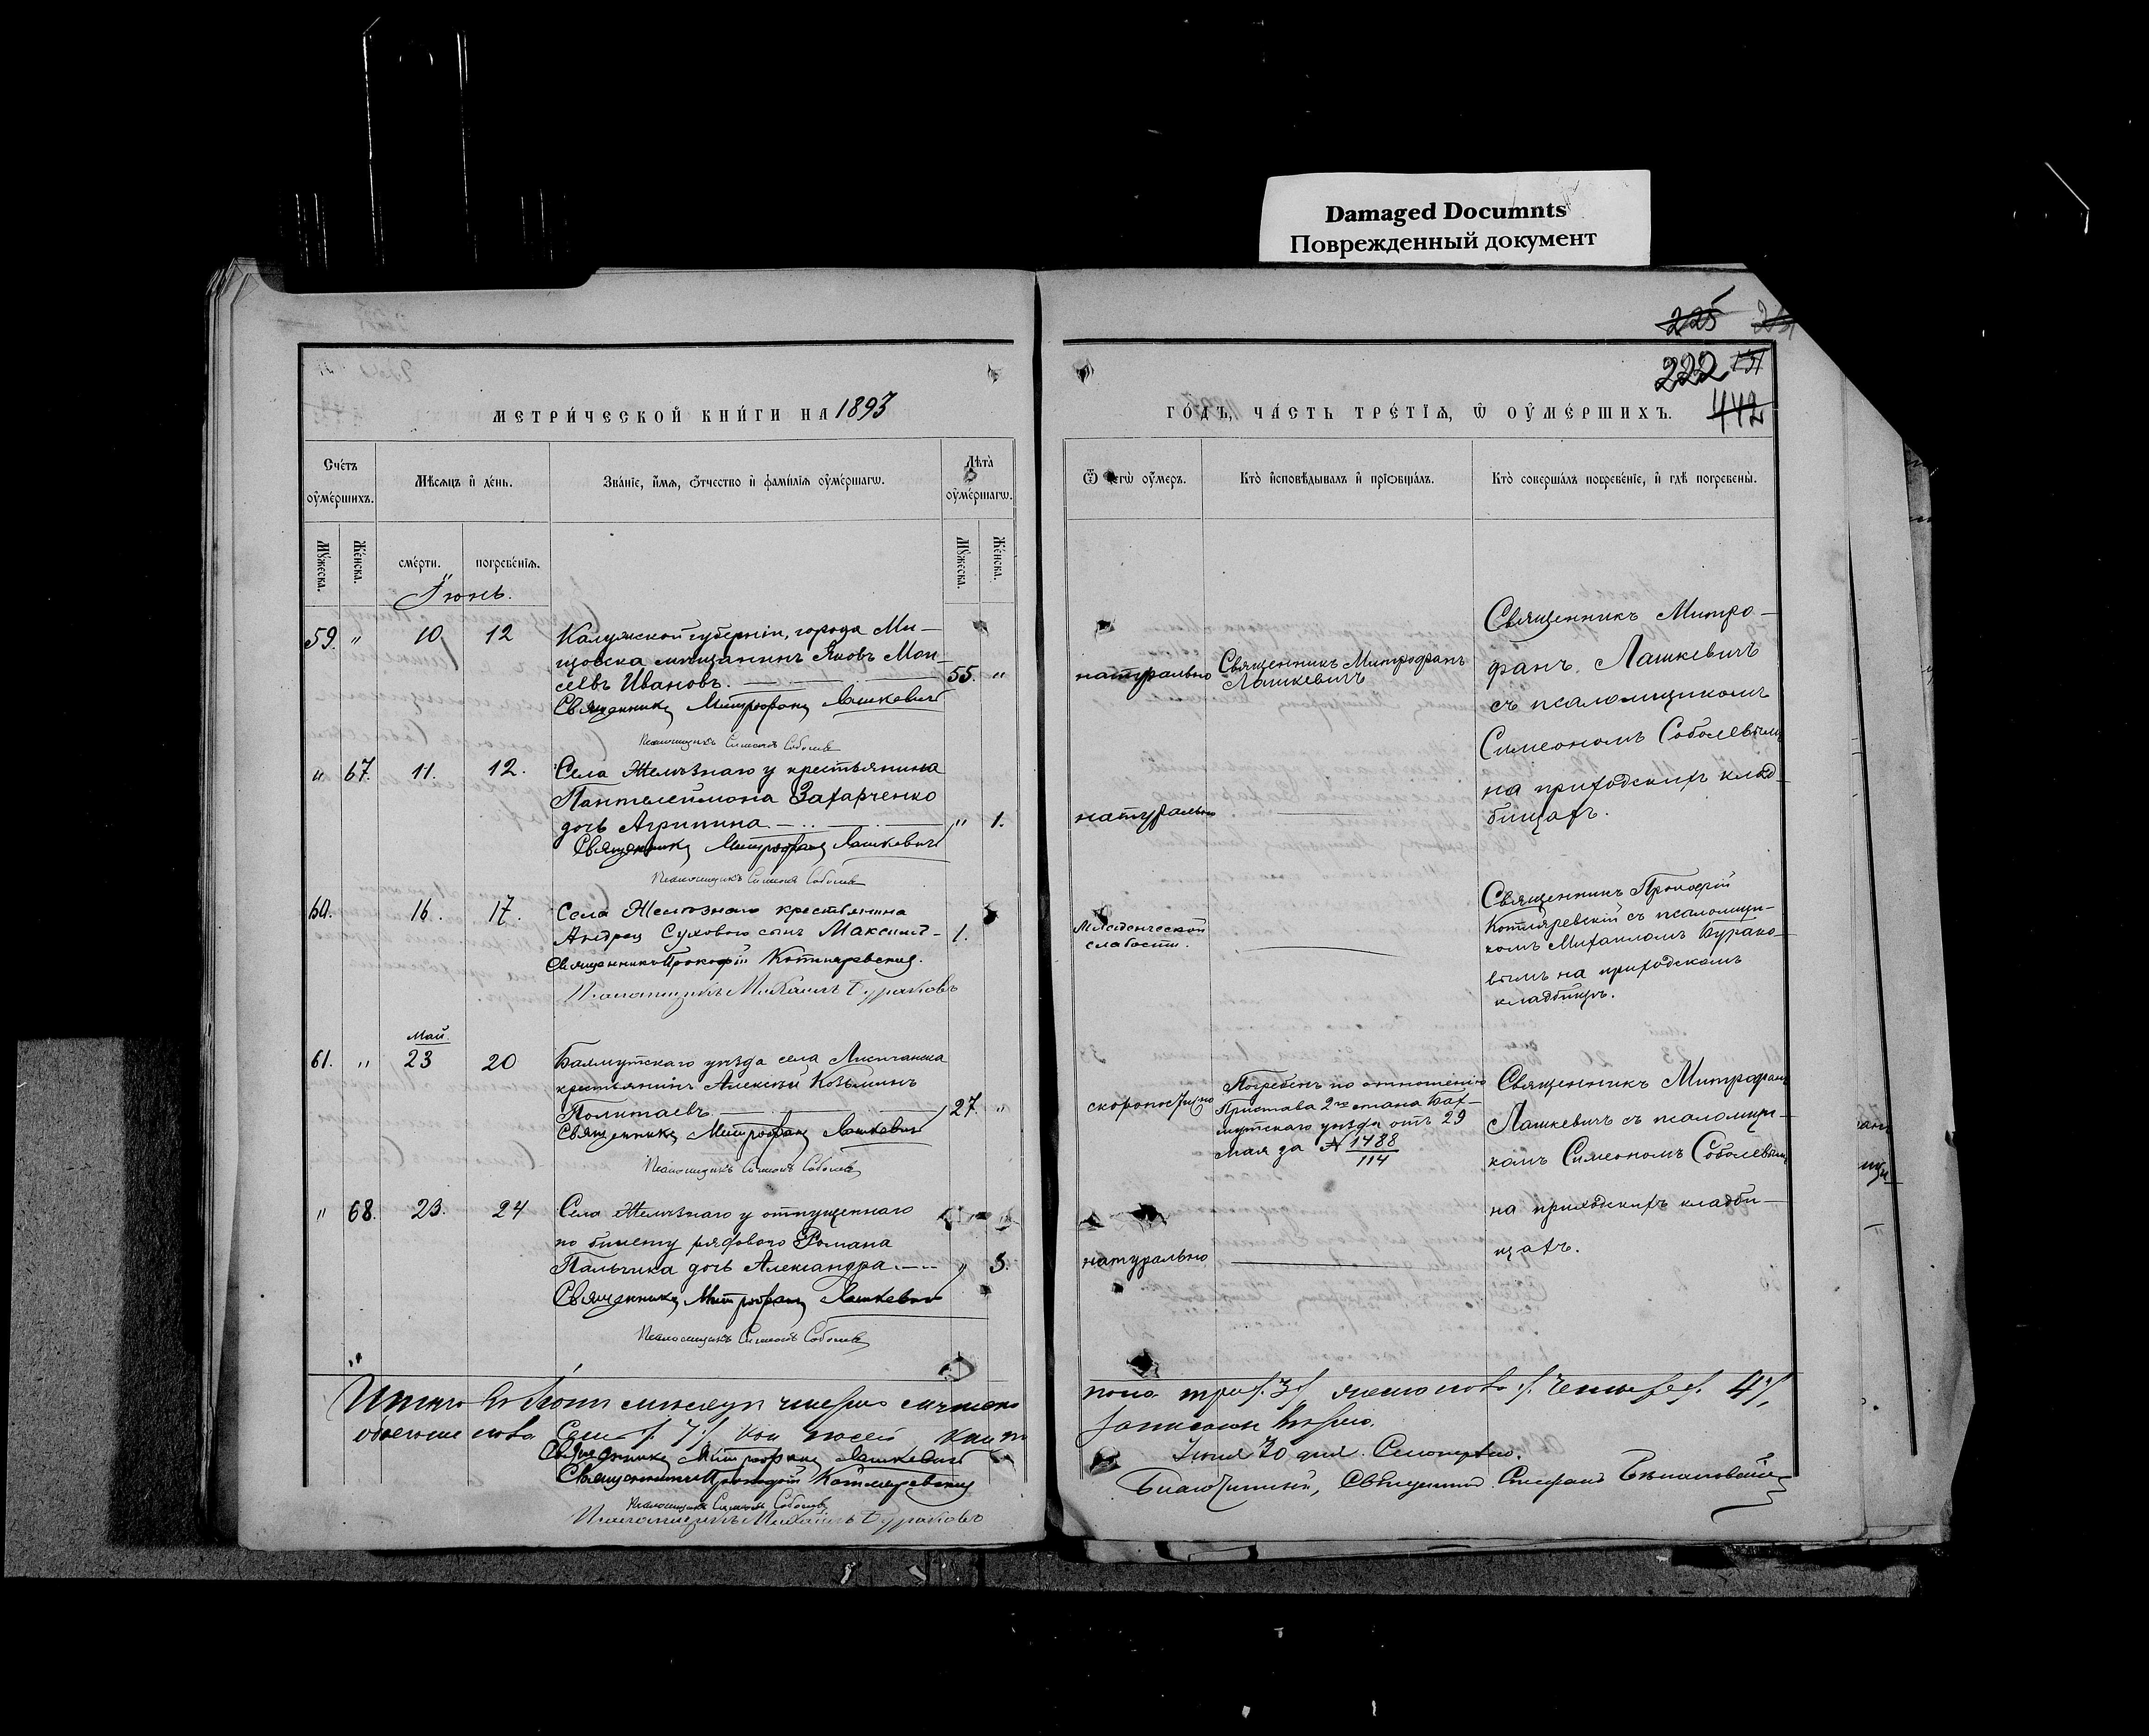 Damaged Documnts
Поврежденный документ
225
222
442
МЕТРИ́ЧЕСКОЙ КНИ́ГИ НА 1893
ГО́ДЪ, ЧА́СТЬ ТРЕ́ТІѦ, Ѡ ОУ҆МЕ́РШИХЪ.
Сче́тъ
оу҆ме́ршихъ.
Мѣ́сѧцъ и҆ де́нь.
Зва́нїе, и҆́мѧ, ѻ҆́тчество и҆ фами́лїѧ оу҆ме́ршагѡ.
Лѣ́та
оу҆ме́ршагѡ.
Ѿ чегѡ̀ оу҆́меръ.
Кто̀ и҆сповѣ́дывалъ и҆ прїѡбща́лъ.
Кто̀ соверша́лъ погребе́нїе, и҆ гдѣ̀ погребены̀.
Мꙋ́жеска.
Же́нска.
сме́рти.
погребе́нїѧ.
Мꙋ́жеска.
Же́нска.
Іюнь.
59. " 10 12 Калужской губерніи, города Ми-
щовска мѣщанинъ Яковъ Мои-
сеевъ Ивановъ. 55. "
Священникъ Митрофанъ Лашкевичъ
Псаломщикъ Симеонъ Соболевъ
натурально
Священникъ Митрофанъ
Лашкевичъ
Священникъ Митро-
фанъ Лашкевичъ
съ псаломщикомъ
Симеономъ Соболевымъ
на приходскихъ клад-
бищахъ.
" 67. 11. 12. Села Желѣзнаго у крестьянина
Пантелеймона Захарченко
дочь Агрипина " 1.
Священникъ Митрофанъ Лашкевичъ
Псаломщикъ Симеонъ Соболевъ
натурально
60. 16. 17. Села Желѣзнаго крестьянина
Андрея Сухового сынъ Максимъ 1.
Священникъ Прокофій Котляревскій.
Псаломщикъ Михаилъ Бураковъ
Младенческой
слабости.
Священникъ Прокофій
Котляревскій съ псаломщи-
комъ Михаиломъ Бурако-
вымъ на приходскомъ
кладбищѣ.
Май
61. " 23 20 Бахмутскаго уѣзда села Лисичанска
крестьянинъ Алексѣй Козьминъ
Полтаевъ 27. "
Священникъ Митрофанъ Лашкевичъ
Псаломщикъ Симеонъ Соболевъ
скоропостижно
Погребенъ по отношенію
Пристава 2го стана Бах-
мутскаго уѣзда отъ 29
мая за № 1488
114
Священникъ Митрофанъ
Лашкевичъ съ псаломщи-
комъ Симеономъ Соболевымъ
на приходскихъ кладби-
щахъ.
" 68. 23. 24 Села Желѣзнаго у отпущеннаго
по билету рядового Романа
Пальчика дочь Александра. " 3.
Священникъ Митрофанъ Лашкевичъ
Псаломщикъ Симеонъ Соболевъ
натурально
Итого въ Іюнѣ мѣсяцѣ умерло мужеска
обоего пола Семь /7/
Священникъ Митрофанъ Лашкевичъ
Священникъ Прокофій Котляревскій
Псаломщикъ Симеонъ Соболевъ
Псаломщикъ Михаилъ Бураковъ
пола три /3/ женскаго /четыре/ 4/,
записаны вѣрно.
Іюля 30 дня.
Благочинный, Священникъ Стефанъ